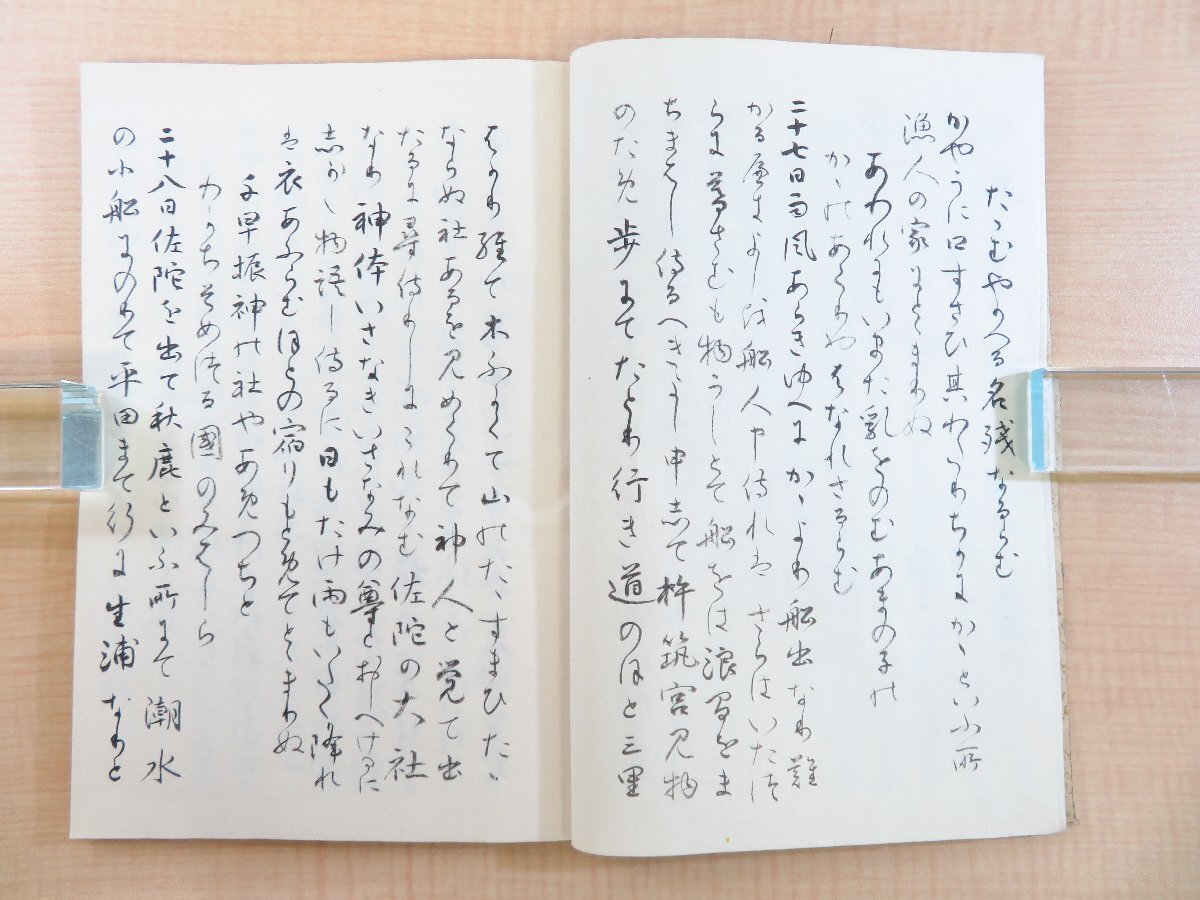 たゝむやかへる名残なるらむ
かやうに口すさひ其わたりちかきかゝといふ所
漁人の家にとまりぬ
あわれにもいまた乳をのむあまの子の
かゝのあたりやはなれさるらむ
二十七日雨風あらきゆへにかゝより船出なり難
かるへきよし船人申侍れは さらはいたつ
らに暮さむも物うしとて船をは浪間をま
ちまはし侍るへきよし申して杵筑宮見物
のため歩にてたとり行き道のほと三里
はかり経て木ふかくて山のたゝすまひたゝ
ならぬ社あるを見めくりて神人と覚て出
たるに尋侍りしにこれなむ佐陀の大社
なり神体いさなきいさなみの尊とおしへけるに
しかゝ物語し侍るに日もたけ雨もいたく降れ
は衣あふらむほとの宿りもとめてとまりぬ
千早振神の社やあめつちと
わかちそめつる國のみはしら
二十八日佐陀を出て秋鹿といふ所にて潮水
の小船にのりて平田まて行に生浦なりと